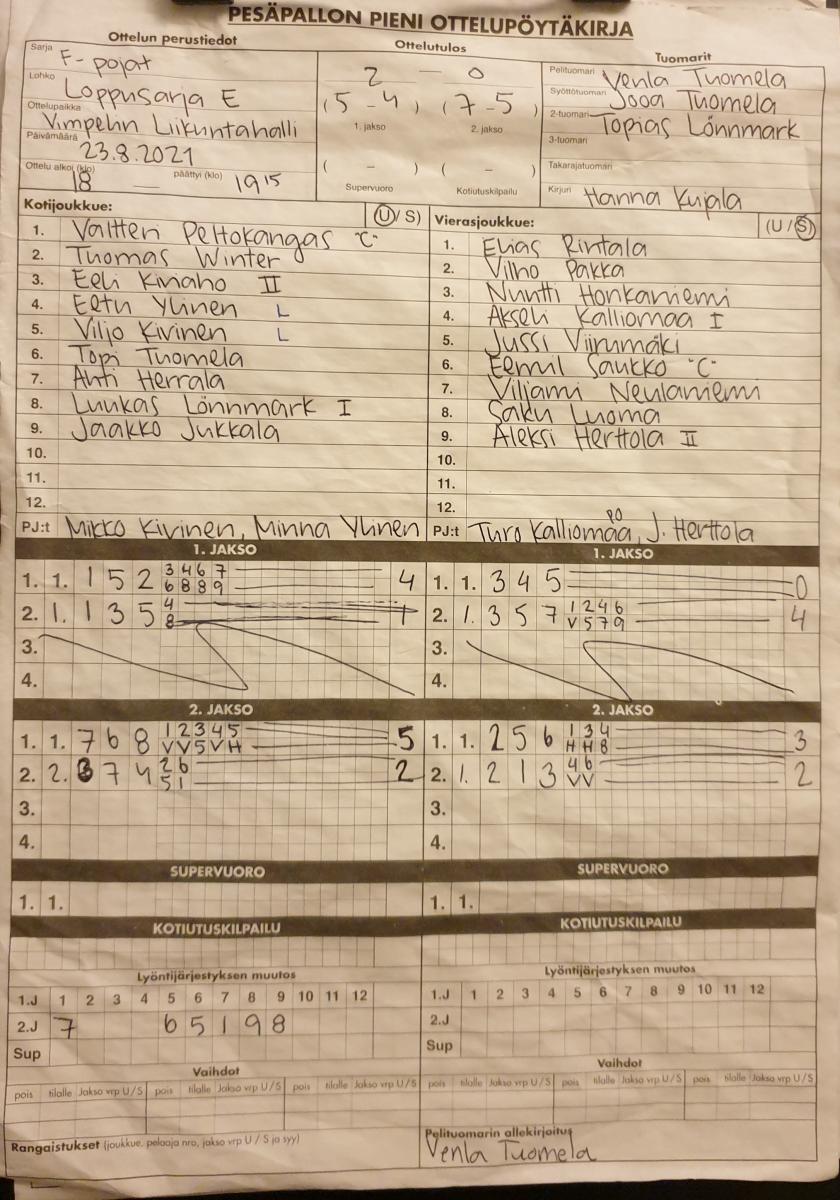 PESÄPALLON PIENI OTTELUPÖYTÄKIRJA
Ottelun perustiedot
Ottelutulos
Tuomarit
Sarja F-pojat
Lohko Loppusarja E
Ottelupaikka Vimpelin Liikuntahalli
Päivämäärä 23.8.2021
Ottelu alkoi (klo) 18 — päättyi (klo) 19 15
2 – 0
(5-4) (7-5)
1. jakso 2. jakso
( - ) ( - )
Supervuoro Kotiutuskilpailu
Pelituomari Venla Tuomela
Syöttötuomari Jooa Tuomela
2-tuomari Topias Lönnmark
3-tuomari
Takarajatuomari
Kirjuri Hanna Kujala
Kotijoukkue: (U/S)
1. Valtteri Peltokangas "C"
2. Tuomas Winter
3. Eeli Kiviaho II
4. Eetu Ylinen L
5. Viljo Kivinen L
6. Topi Tuomela
7. Ahti Herrala
8. Luukas Lönnmark I
9. Jaakko Jukkala
10.
11.
12.
PJ:t Mikko Kivinen, Minna Ylinen
Vierasjoukkue: (U/S)
1. Elias Rintala
2. Vilho Pakka
3. Nuutti Honkaniemi
4. Akseli Kalliomaa I
5. Jussi Viirumäki
6. Eemil Saukko "C"
7. Viljami Neulaniemi
8. Saku Luoma
9. Aleksi Herttola II
10.
11.
12.
PJ:t Turo Kalliomaa, PO J. Herttola
1. JAKSO
1. 1. 1 5 2 3 4 6 7 4
6 8 8 9
2. 1. 1 3 5 4 1
8
3.
4.
1. JAKSO
1. 1. 3 4 5 0
2. 1. 3 5 7 1 2 4 6 4
V 5 7 9
3.
4.
2. JAKSO
1. 1. 7 6 8 1 2 3 4 5 5
V V 5 V H
2. 2. 3 7 4 2 6 2
5 1
3.
4.
2. JAKSO
1. 1. 2 5 6 1 3 4 3
H H 8
2. 1. 2 1 3 4 6 2
V V
3.
4.
SUPERVUORO
1. 1.
SUPERVUORO
1. 1.
KOTIUTUSKILPAILU
KOTIUTUSKILPAILU
Lyöntijärjestyksen muutos
1.J 1 2 3 4 5 6 7 8 9 10 11 12
2.J 7 6 5 1 9 8
Sup
Lyöntijärjestyksen muutos
1.J 1 2 3 4 5 6 7 8 9 10 11 12
2.J
Sup
Vaihdot
pois tilalle Jakso vrp U/S pois tilalle Jakso vrp U/S pois tilalle Jakso vrp U/S
Vaihdot
pois tilalle Jakso vrp U/S pois tilalle Jakso vrp U/S pois tilalle Jakso vrp U/S
Rangaistukset (joukkue, pelaaja nro, jakso vrp U / S ja syy)
Pelituomarin allekirjoitus
Venla Tuomela